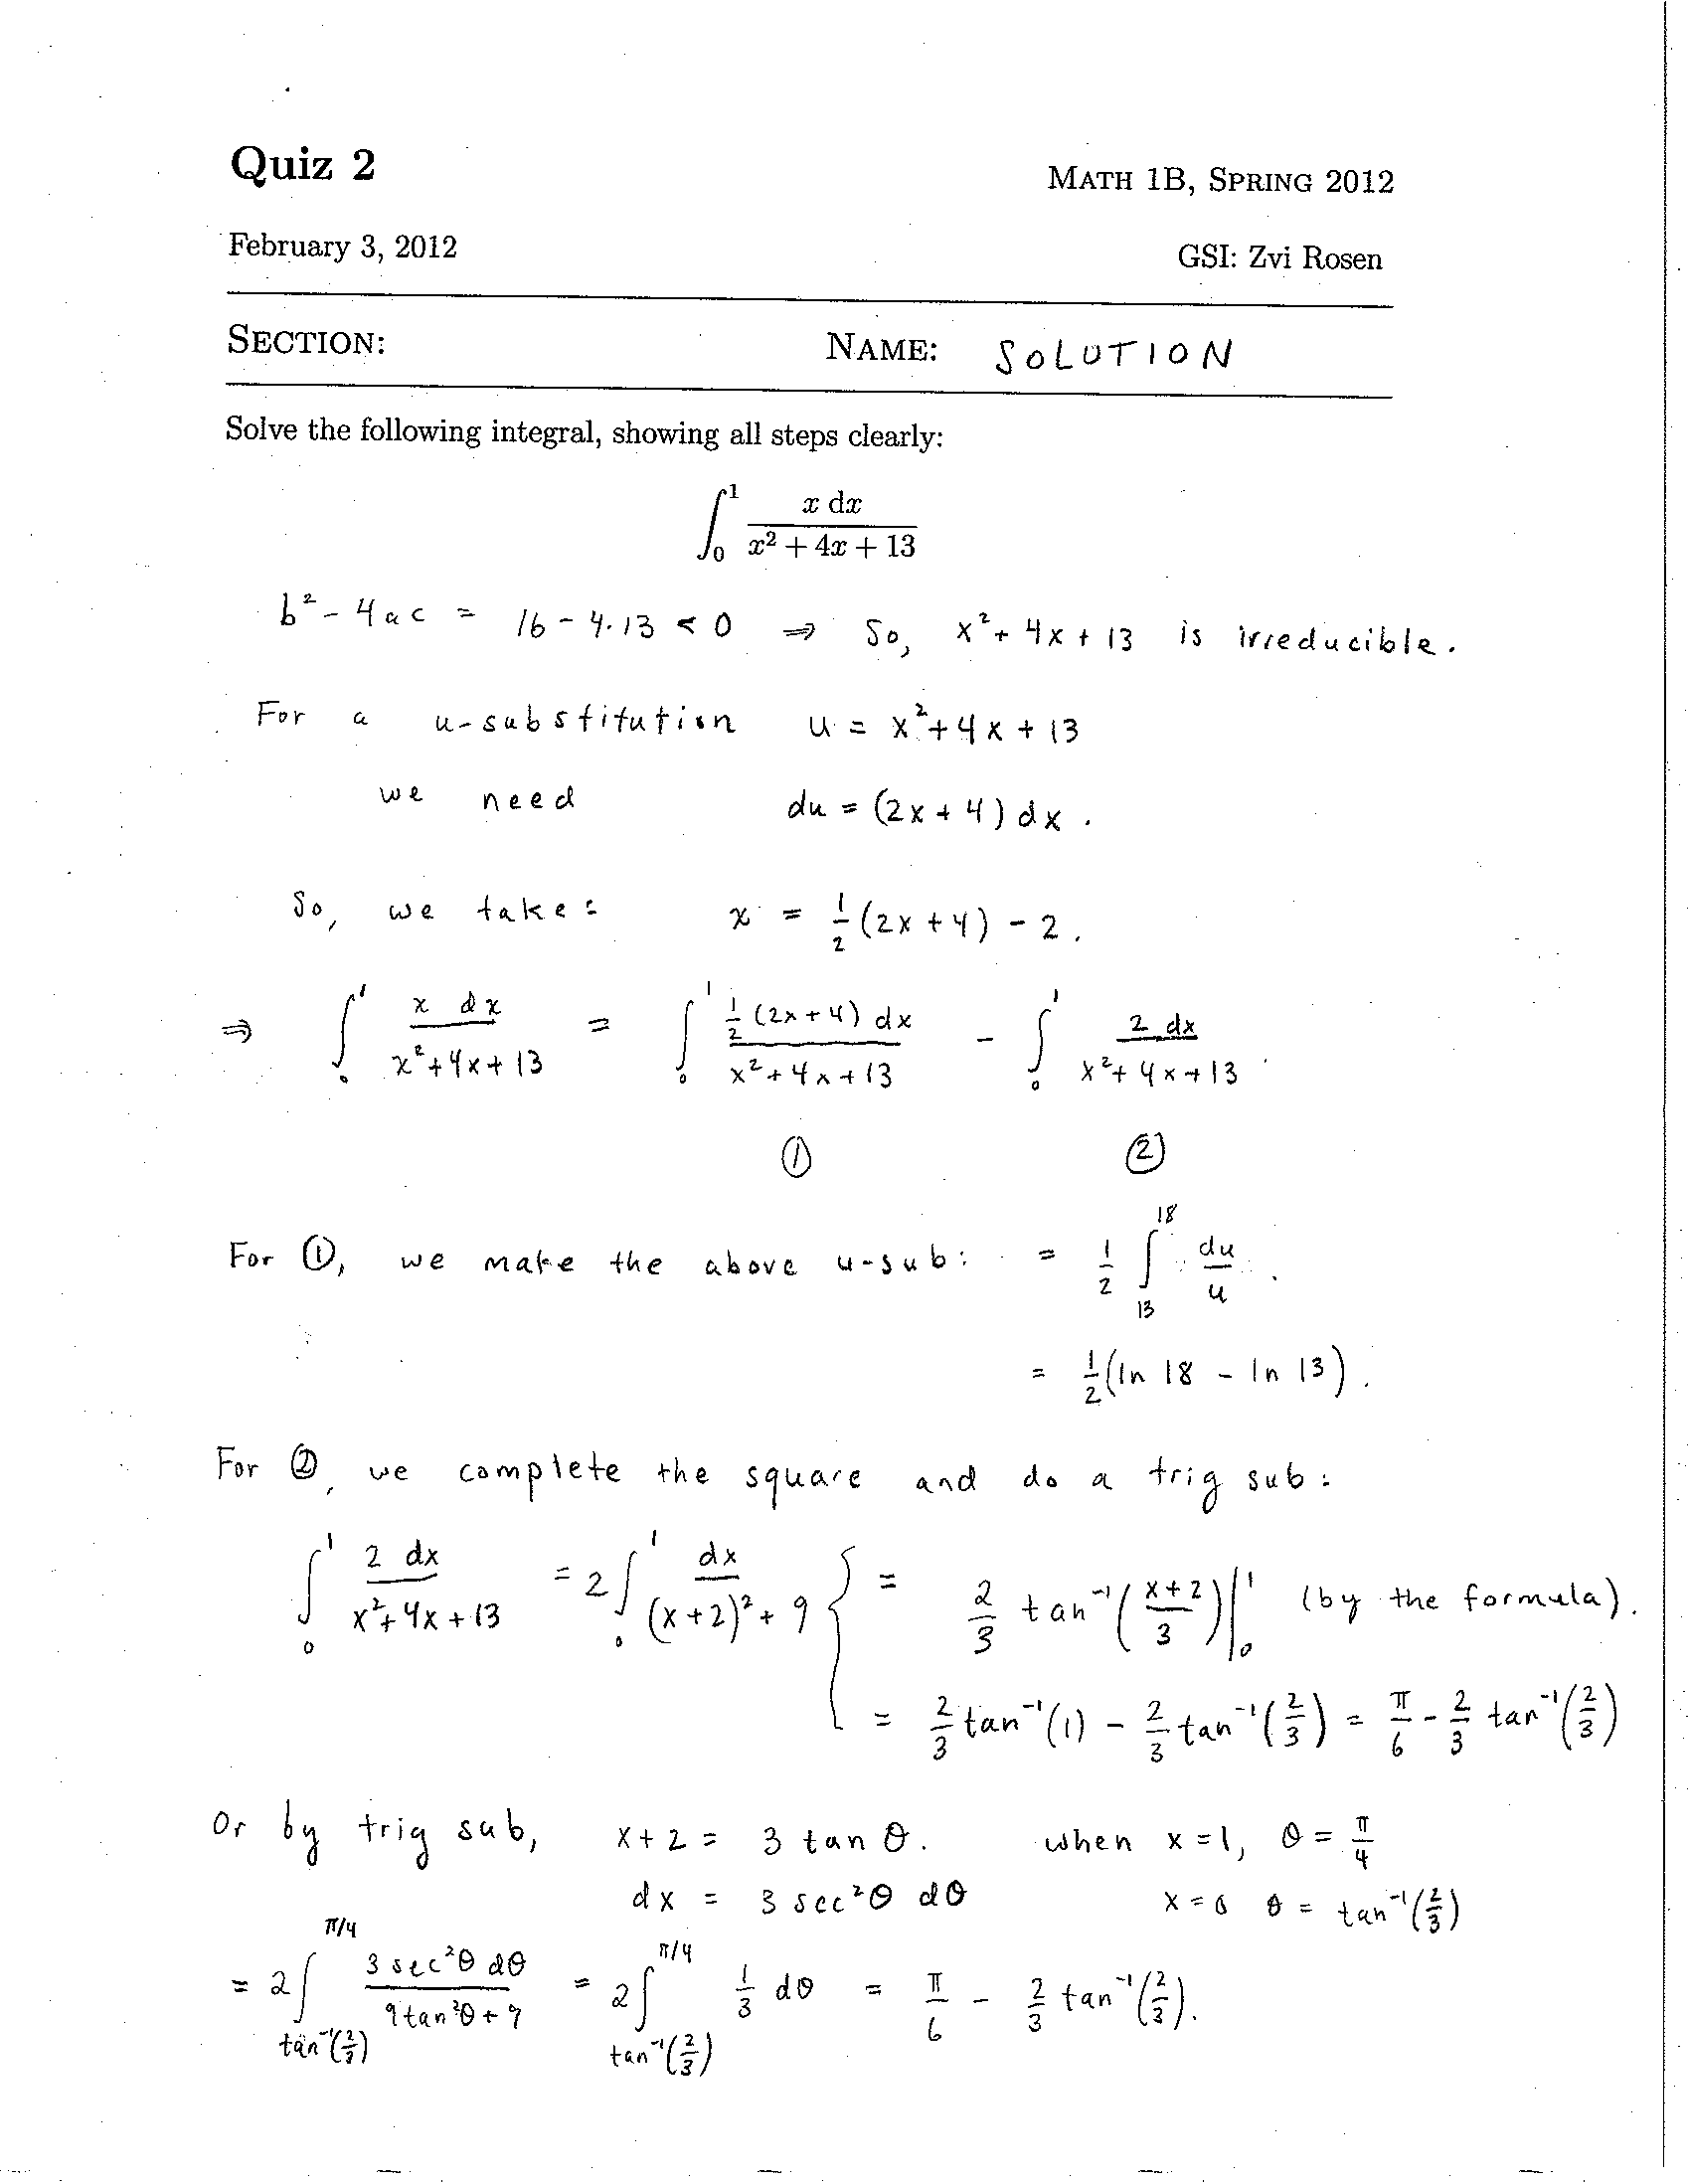 Quiz 2
MATH 1B, SPRING 2012
February 3, 2012
GSI: Zvi Rosen
SECTION:
NAME: SOLUTION
Solve the following integral, showing all steps clearly:
∫₀¹ x dx / (x² + 4x + 13)
b² - 4ac = 16 - 4·13 < 0 ⇒ So, x² + 4x + 13 is irreducible.
For a u-substitution u = x² + 4x + 13
we need du = (2x + 4) dx.
So, we take: x = 1/2 (2x + 4) - 2.
⇒ ∫₀¹ x dx / (x² + 4x + 13) = ∫₀¹ 1/2 (2x + 4) dx / (x² + 4x + 13) - ∫₀¹ 2 dx / (x² + 4x + 13).
① ②
For ①, we make the above u-sub: = 1/2 ∫₁₃¹⁸ du/u.
= 1/2 (ln 18 - ln 13).
For ②, we complete the square and do a trig sub:
∫₀¹ 2 dx / (x² + 4x + 13) = 2 ∫₀¹ dx / ((x + 2)² + 9) { = 2/3 tan⁻¹((x + 2)/3) |₀¹ (by the formula).
= 2/3 tan⁻¹(1) - 2/3 tan⁻¹(2/3) = π/6 - 2/3 tan⁻¹(2/3)
Or by trig sub, x + 2 = 3 tan θ. when x = 1, θ = π/4
dx = 3 sec²θ dθ x = 0 θ = tan⁻¹(2/3)
= 2 ∫_{tan⁻¹(2/3)}^{π/4} 3 sec²θ dθ / (9 tan²θ + 9) = 2 ∫_{tan⁻¹(2/3)}^{π/4} 1/3 dθ = π/6 - 2/3 tan⁻¹(2/3).